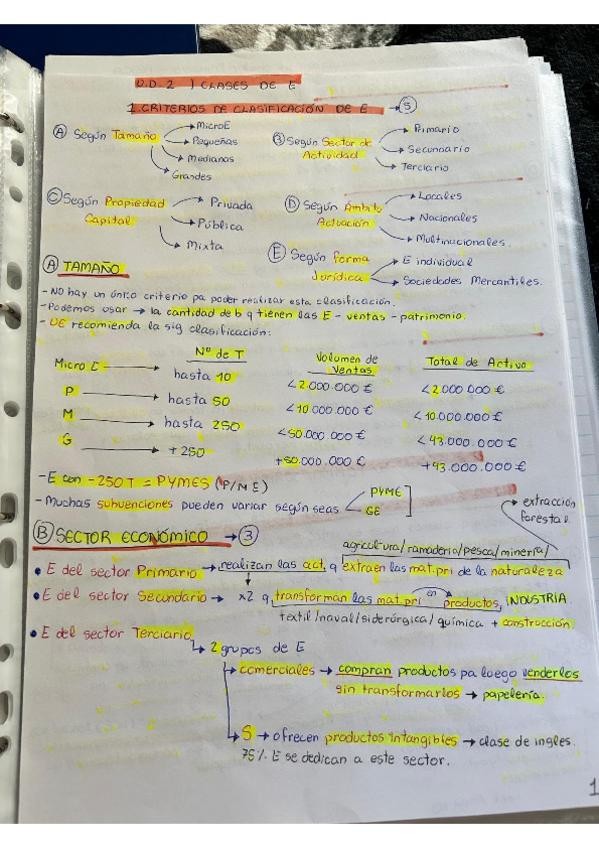 U.D. 2 ) CLASES DE E
1. CRITERIOS DE CLASIFICACIÓN DE E → 5
A Según Tamaño → MicroE → Pequeñas → Medianas → Grandes
B Según Sector de Actividad → Primario → Secundario → Terciario
C Según Propiedad Capital → Privada → Pública → Mixta
D Según Ámbito Actuación → Locales → Nacionales → Multinacionales.
E Según forma Jurídica → E individual → Sociedades Mercantiles.
A TAMAÑO
- NO hay un único criterio pa poder realizar esta clasificación.
- Podemos usar → la cantidad de b q tienen las E - ventas - patrimonio.
- UE recomienda la sig clasificación:
Nº de T Volumen de Ventas Total de Activo
Micro E → hasta 10 <2.000.000 € <2.000.000 €
P → hasta 50 <10.000.000 € <10.000.000 €
M → hasta 250 <50.000.000 € <43.000.000 €
G → +250 +50.000.000 € +43.000.000 €
- E con -250 T = PYMES (P/M E)
- Muchas subvenciones pueden variar según seas PYME GE
B SECTOR ECONÓMICO → 3
→ extracción forestal.
agricultura/ramadería/pesca/minería/
• E del sector Primario → realizan las act. q extraen las mat.pri de la naturaleza
• E del sector Secundario → x2 q transforman las mat.pri en productos, INDUSTRIA
textil/naval/siderúrgica/química + construcción
• E del sector Terciario
→ 2 grupos de E
→ comerciales → compran productos pa luego venderlos
sin transformarlos → papelería.
→ S → ofrecen productos intangibles → clase de ingles.
75% E se dedican a este sector.
1